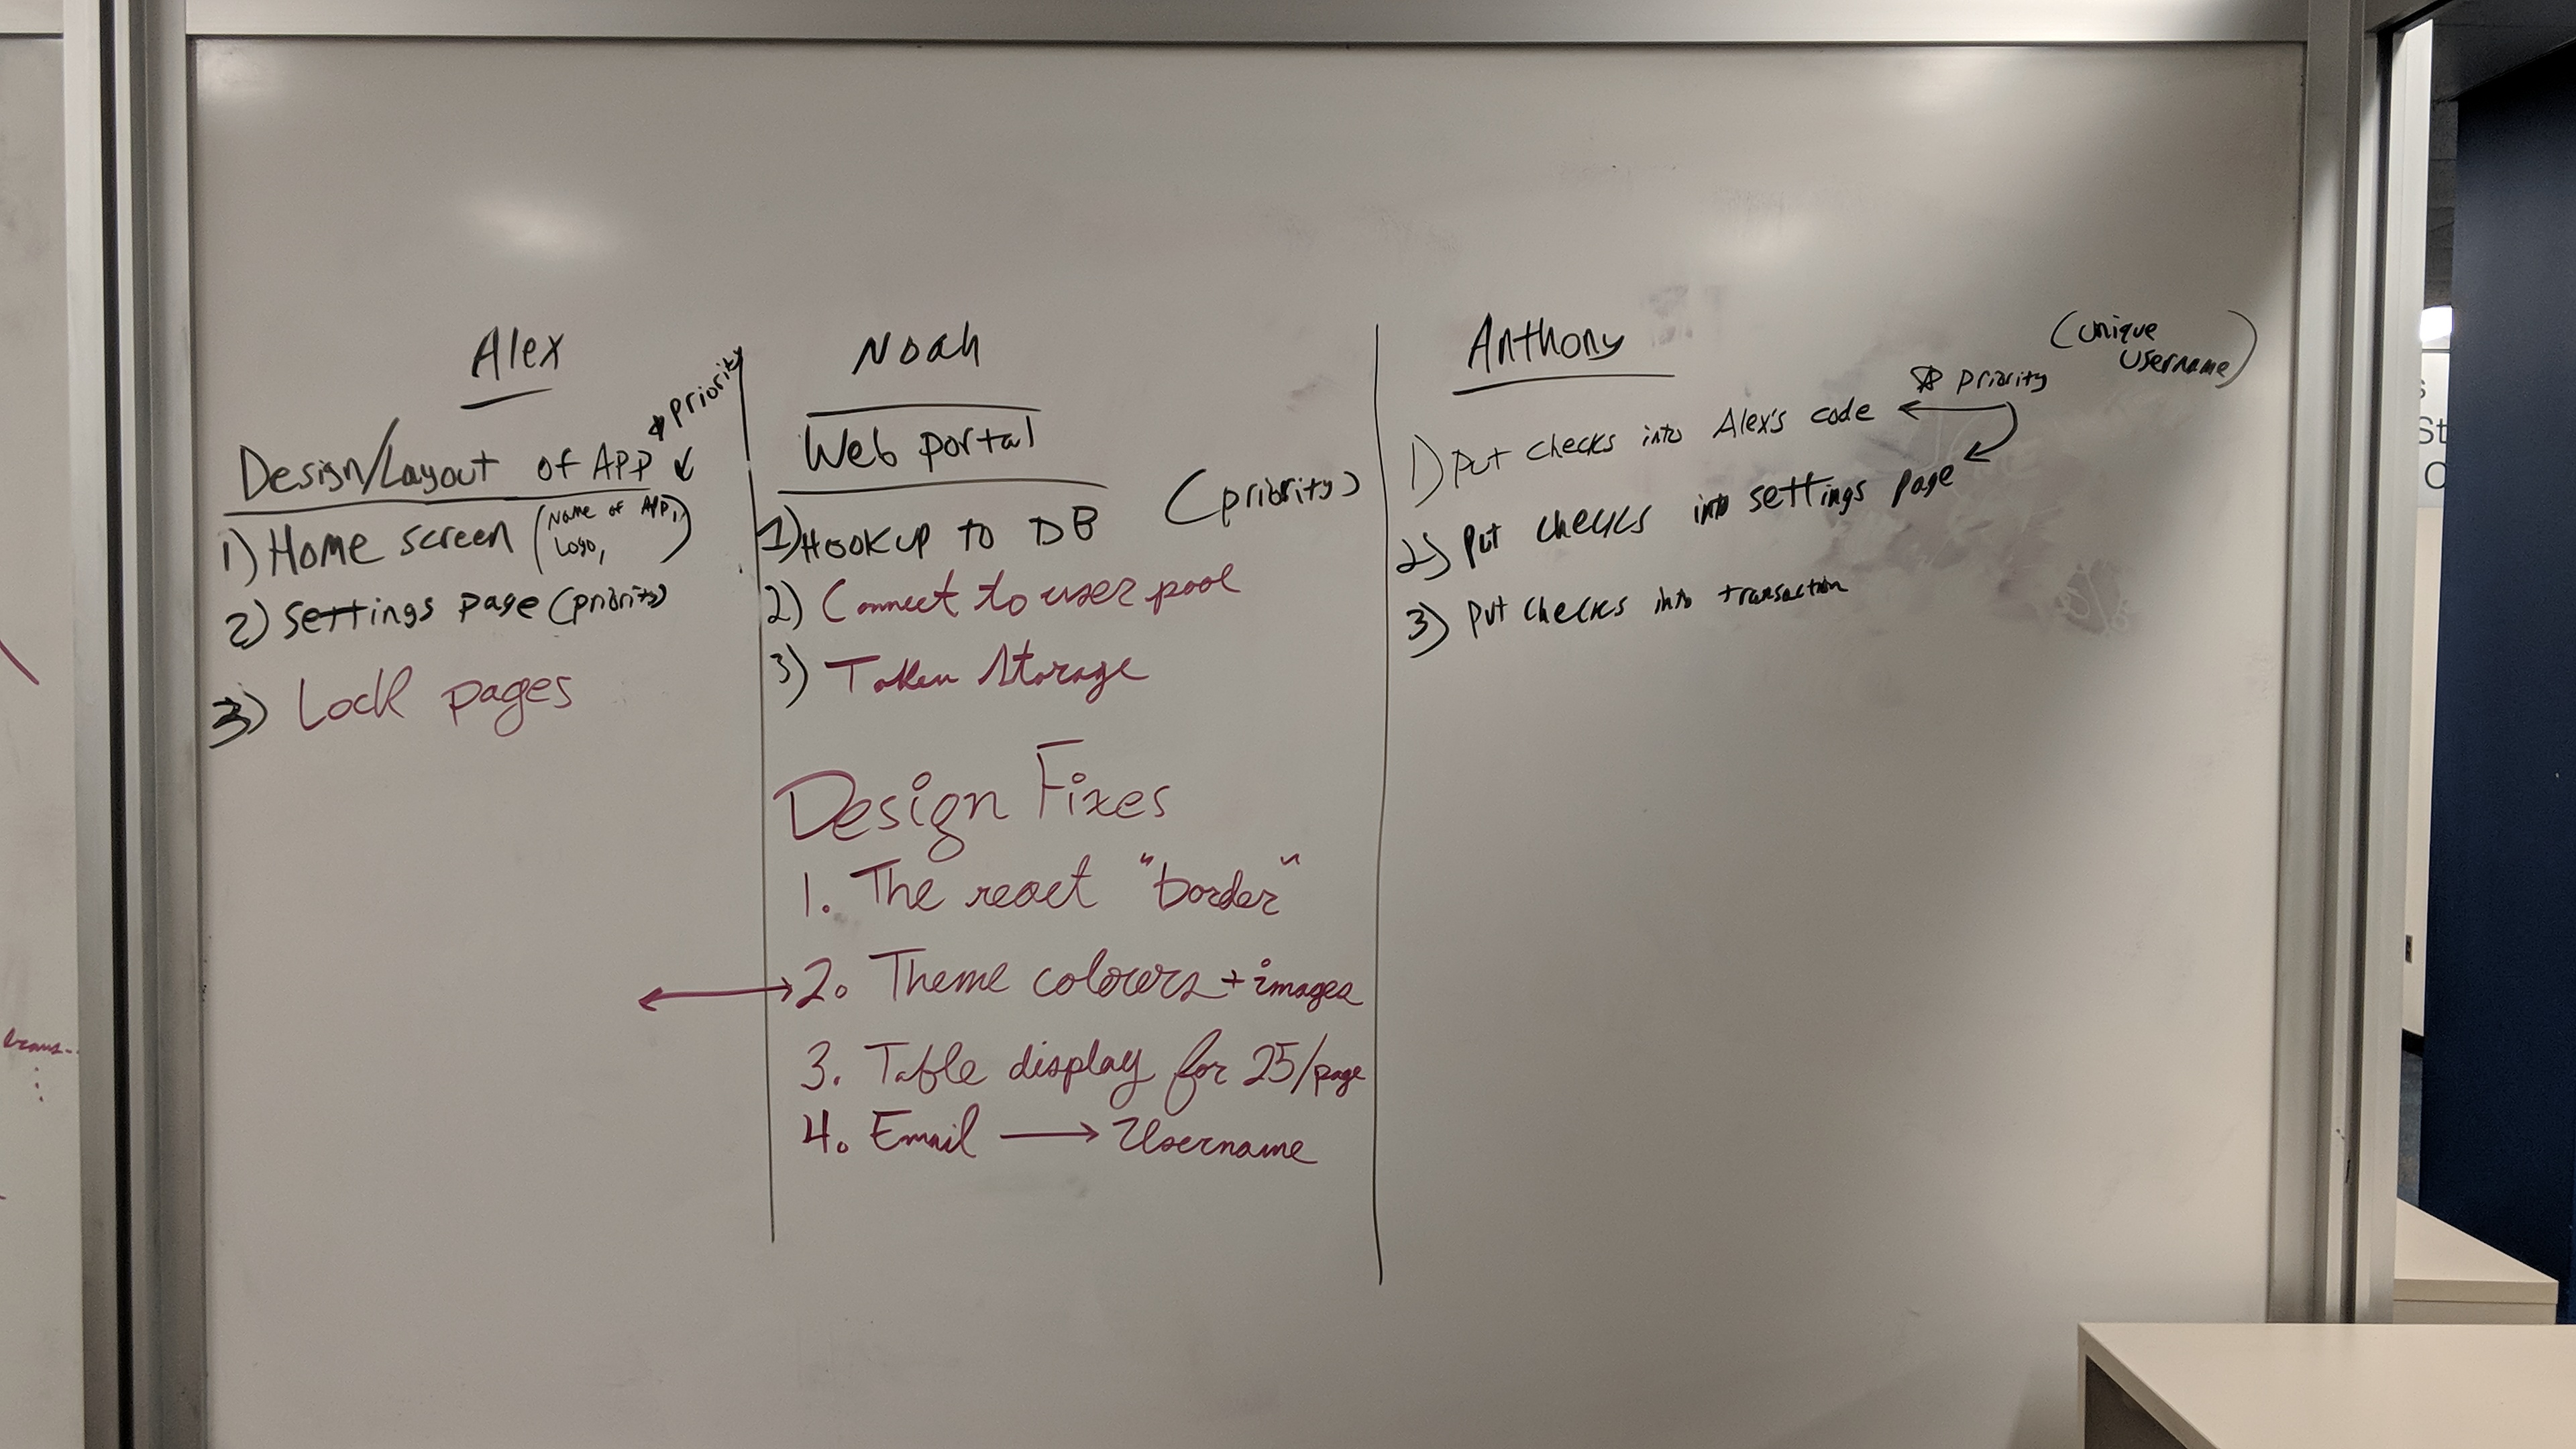 Alex
* priority
Design/Layout of APP
1) Home screen (Name of APP,
Logo, )
2) Settings page (priority)
3) Lock pages
Noah
Web portal
(priority)
1) Hookup to DB
2) Connect to user pool
3) Token Storage
Design Fixes
1. The react "border"
2. Theme colours + images
3. Table display for 25/page
4. Email → Username
Anthony
(unique
username)
* priority
1) Put checks into Alex's code
2) Put checks into settings page
3) Put checks into transaction
St